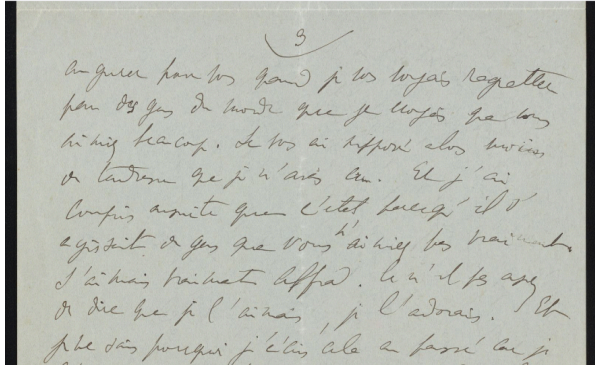 3
augurer pour vous quand je vous voyais regretter
peu des gens du monde que je croyais que vous
aimiez beaucoup. Je vous ai supposé alors moins
de tendresse que je n'avais cru. Et j'ai
compris ensuite que c'était parce qu'il s'
agissait de gens que vous n'aimiez pas vraiment.
J'aimais vraiment Alfred. Ce n'est pas assez
de dire que je l'aimais, je l'adorais. Et
je ne sais pourquoi j'écris cela au passé car je